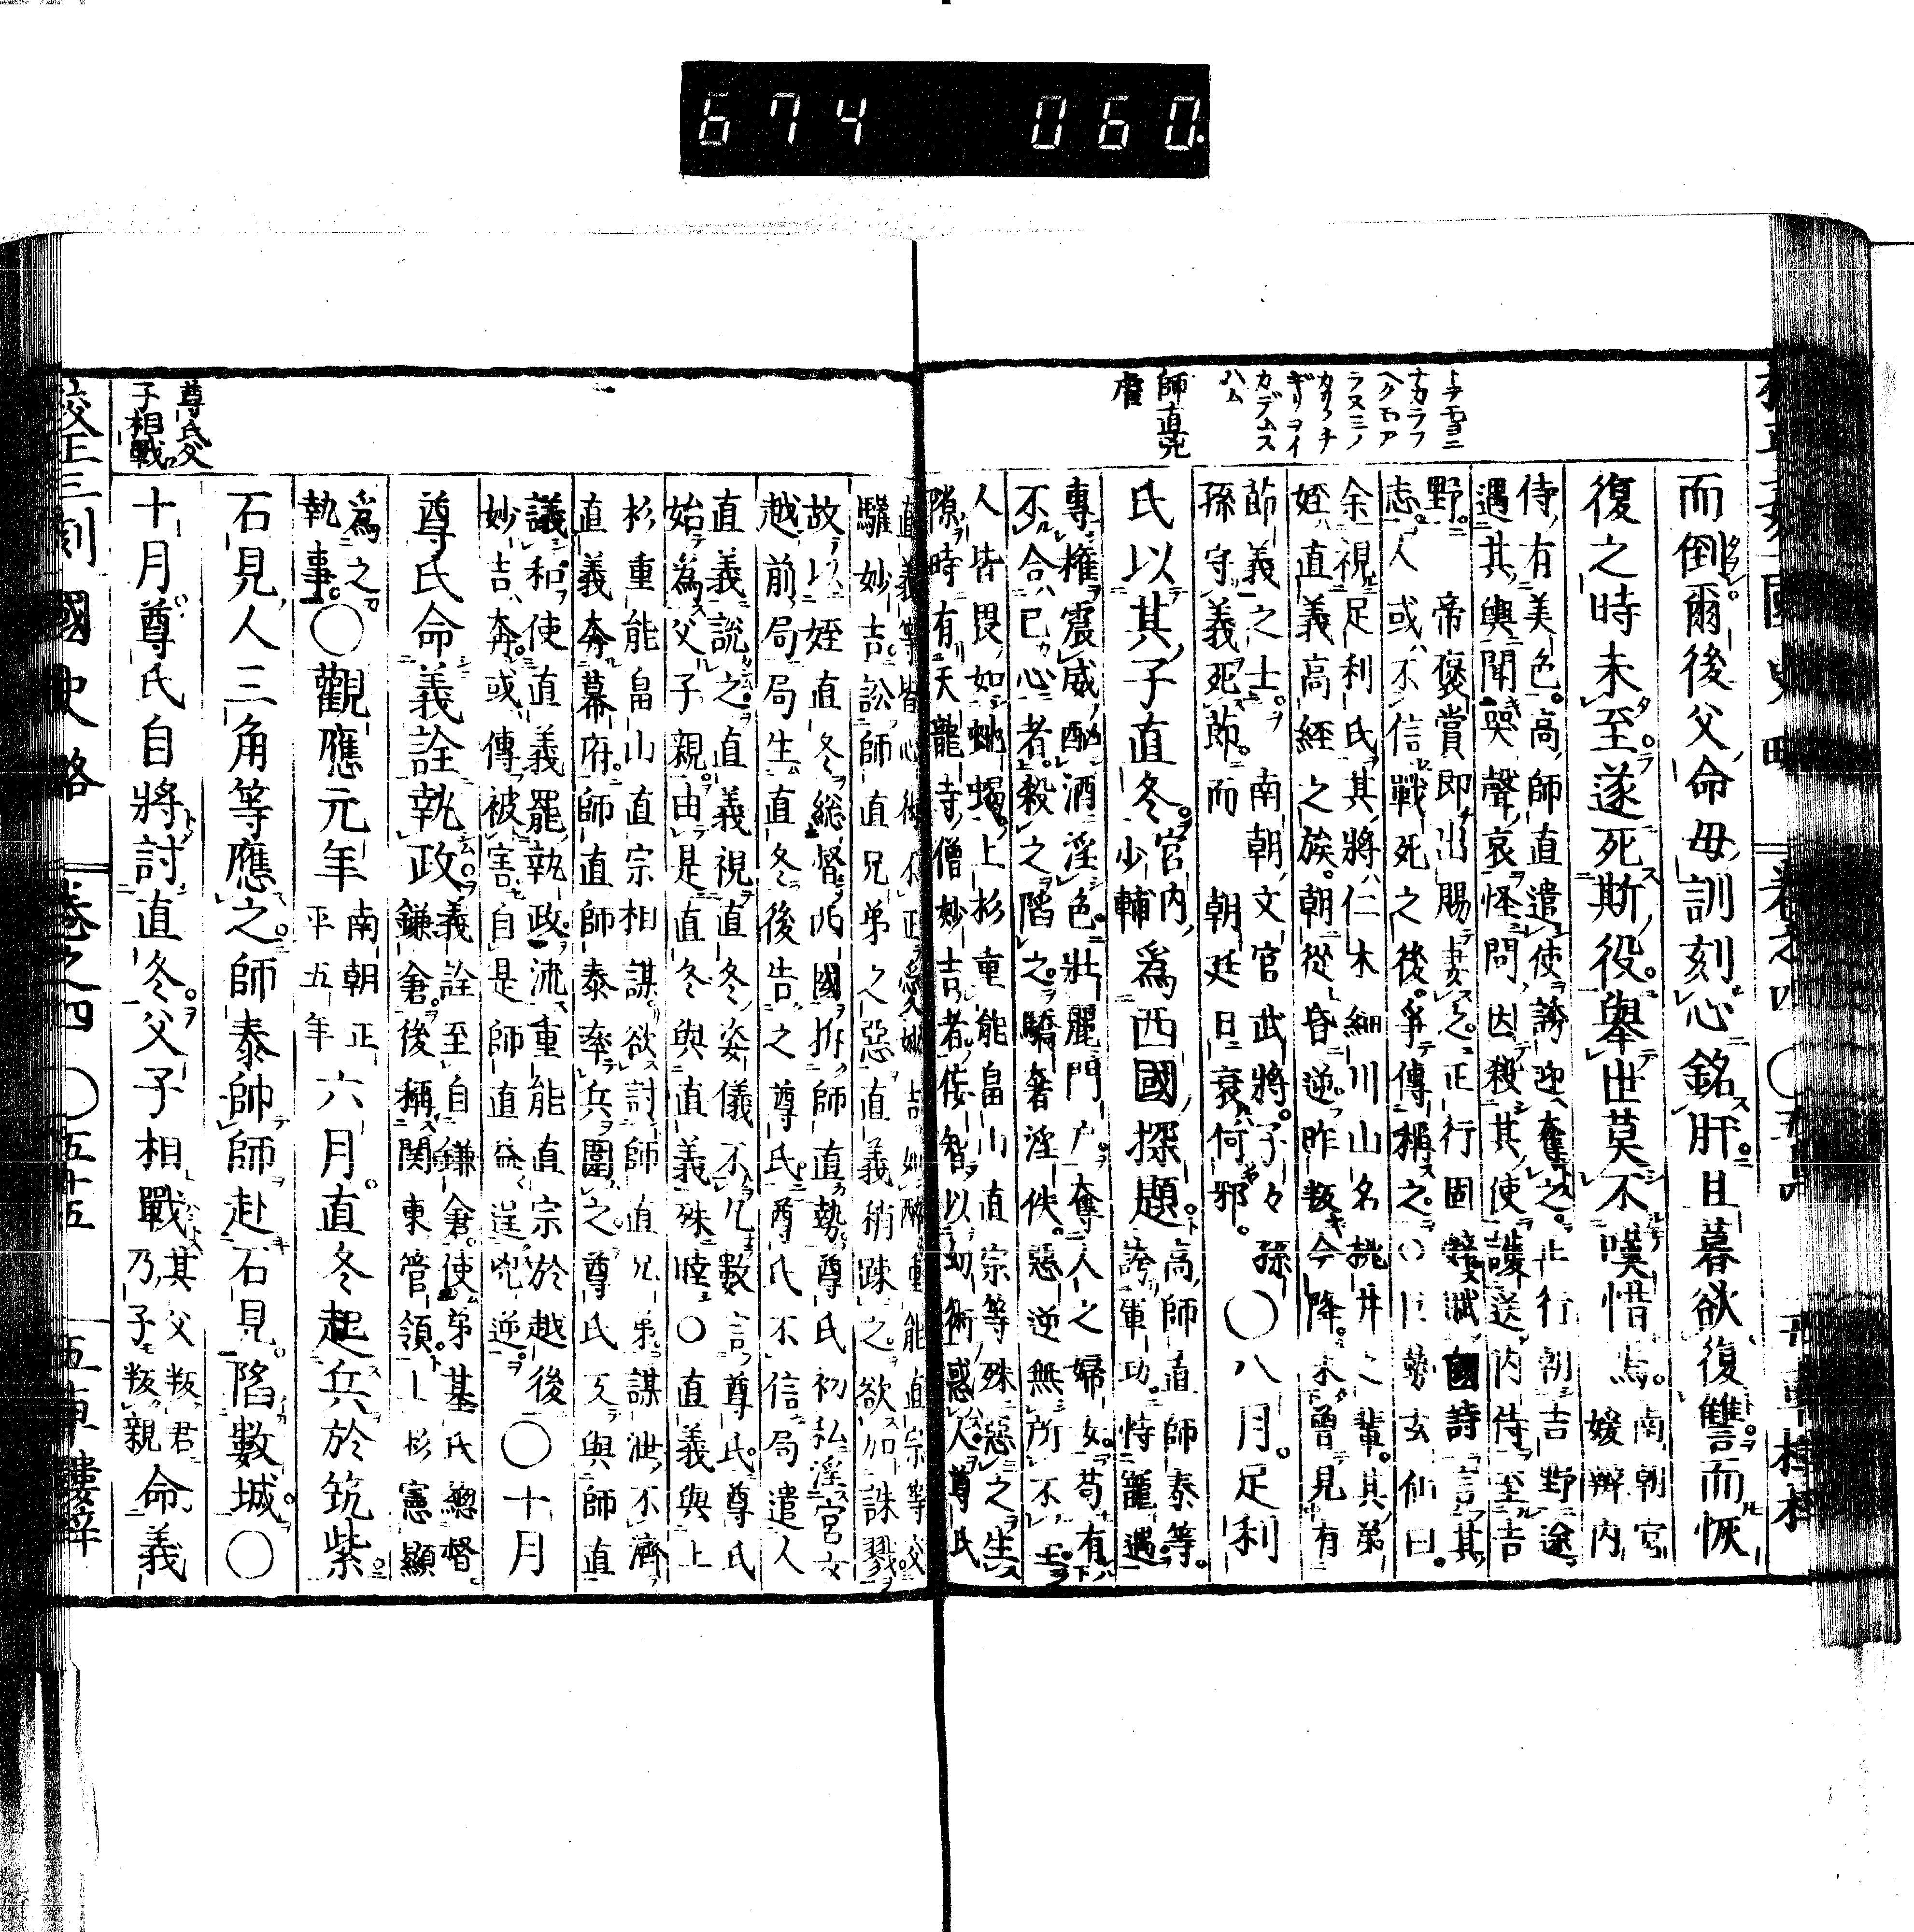 674 060
トテモヨニ
ナカラフ
ヘクモア
ラヌミノ
カリノチ
ギリヲイ
カデムス
ハム
師直兇
虐
而倒爾後父命母訓刻心銘肝且暮欲復讐而恢
復之時未至遂死斯役擧世莫不嘆惜焉南朝宮
媛辯内
侍有美色高師直遣使誇迎奪之正行朝吉野途
遇其輿聞哭聲哀怪問因殺其使護送内侍至吉
野帝褒賞即出賜妻之正行固讓賦國詩言其
志人或不信戰死之後爭傳稱之〇巨勢玄仙曰
余視足利氏其將仁木細川山名桃井之輩其弟
姪直義高經之族朝從昏逆昨叛今降未曾見有
節義之士南朝文官武將子々孫
孫守義死節而朝廷日衰何邪〇八月足利
氏以其子直冬宮内少輔爲西國探題高師直師泰等
誇軍功恃寵遇
專權震威酗酒淫色壯麗門户奪人之婦女苟有
不合已心者殺之陷之驕奢淫佚惡逆無所不
人皆畏如虵蝎上杉重能畠山直宗等殊惡之生
隙時有天龍寺僧妙吉者侫智以幻術惑人尊氏
直義等皆心術不正愛妙吉妙
驩妙吉訟師直兄弟之惡直義稍疎之欲加誅戮
故以姪直冬総督西國拆師直勢尊氏初私淫宮女
越前局局生直冬後告之尊氏尊氏不信局遣人
直義説之直義視直冬姿儀不凡數言尊氏尊氏
始爲父子親由是直冬與直義殊睦〇直義與上
杉重能畠山直宗相謀欲討師直兄弟謀泄不濟
直義奔幕府師直師泰率兵圍之尊氏又與師直
議和使直義罷執政流重能直宗於越後
妙吉奔或傳被害自是師直益逞兇逆〇十月
尊氏命義詮執政義詮至自鎌倉使弟基氏總督
鎌倉後稱関東管領上杉憲顯
爲之
執事〇觀應元年南朝正
平五年六月直冬起兵於筑紫
石見人三角等應之師泰帥師赴石見陷數城〇
十月尊氏自將討直冬父子相戰其父叛君
乃子叛親命義
尊氏父
子相戰
校正三刻國史略 卷之四 〇五十五 五車樓梓